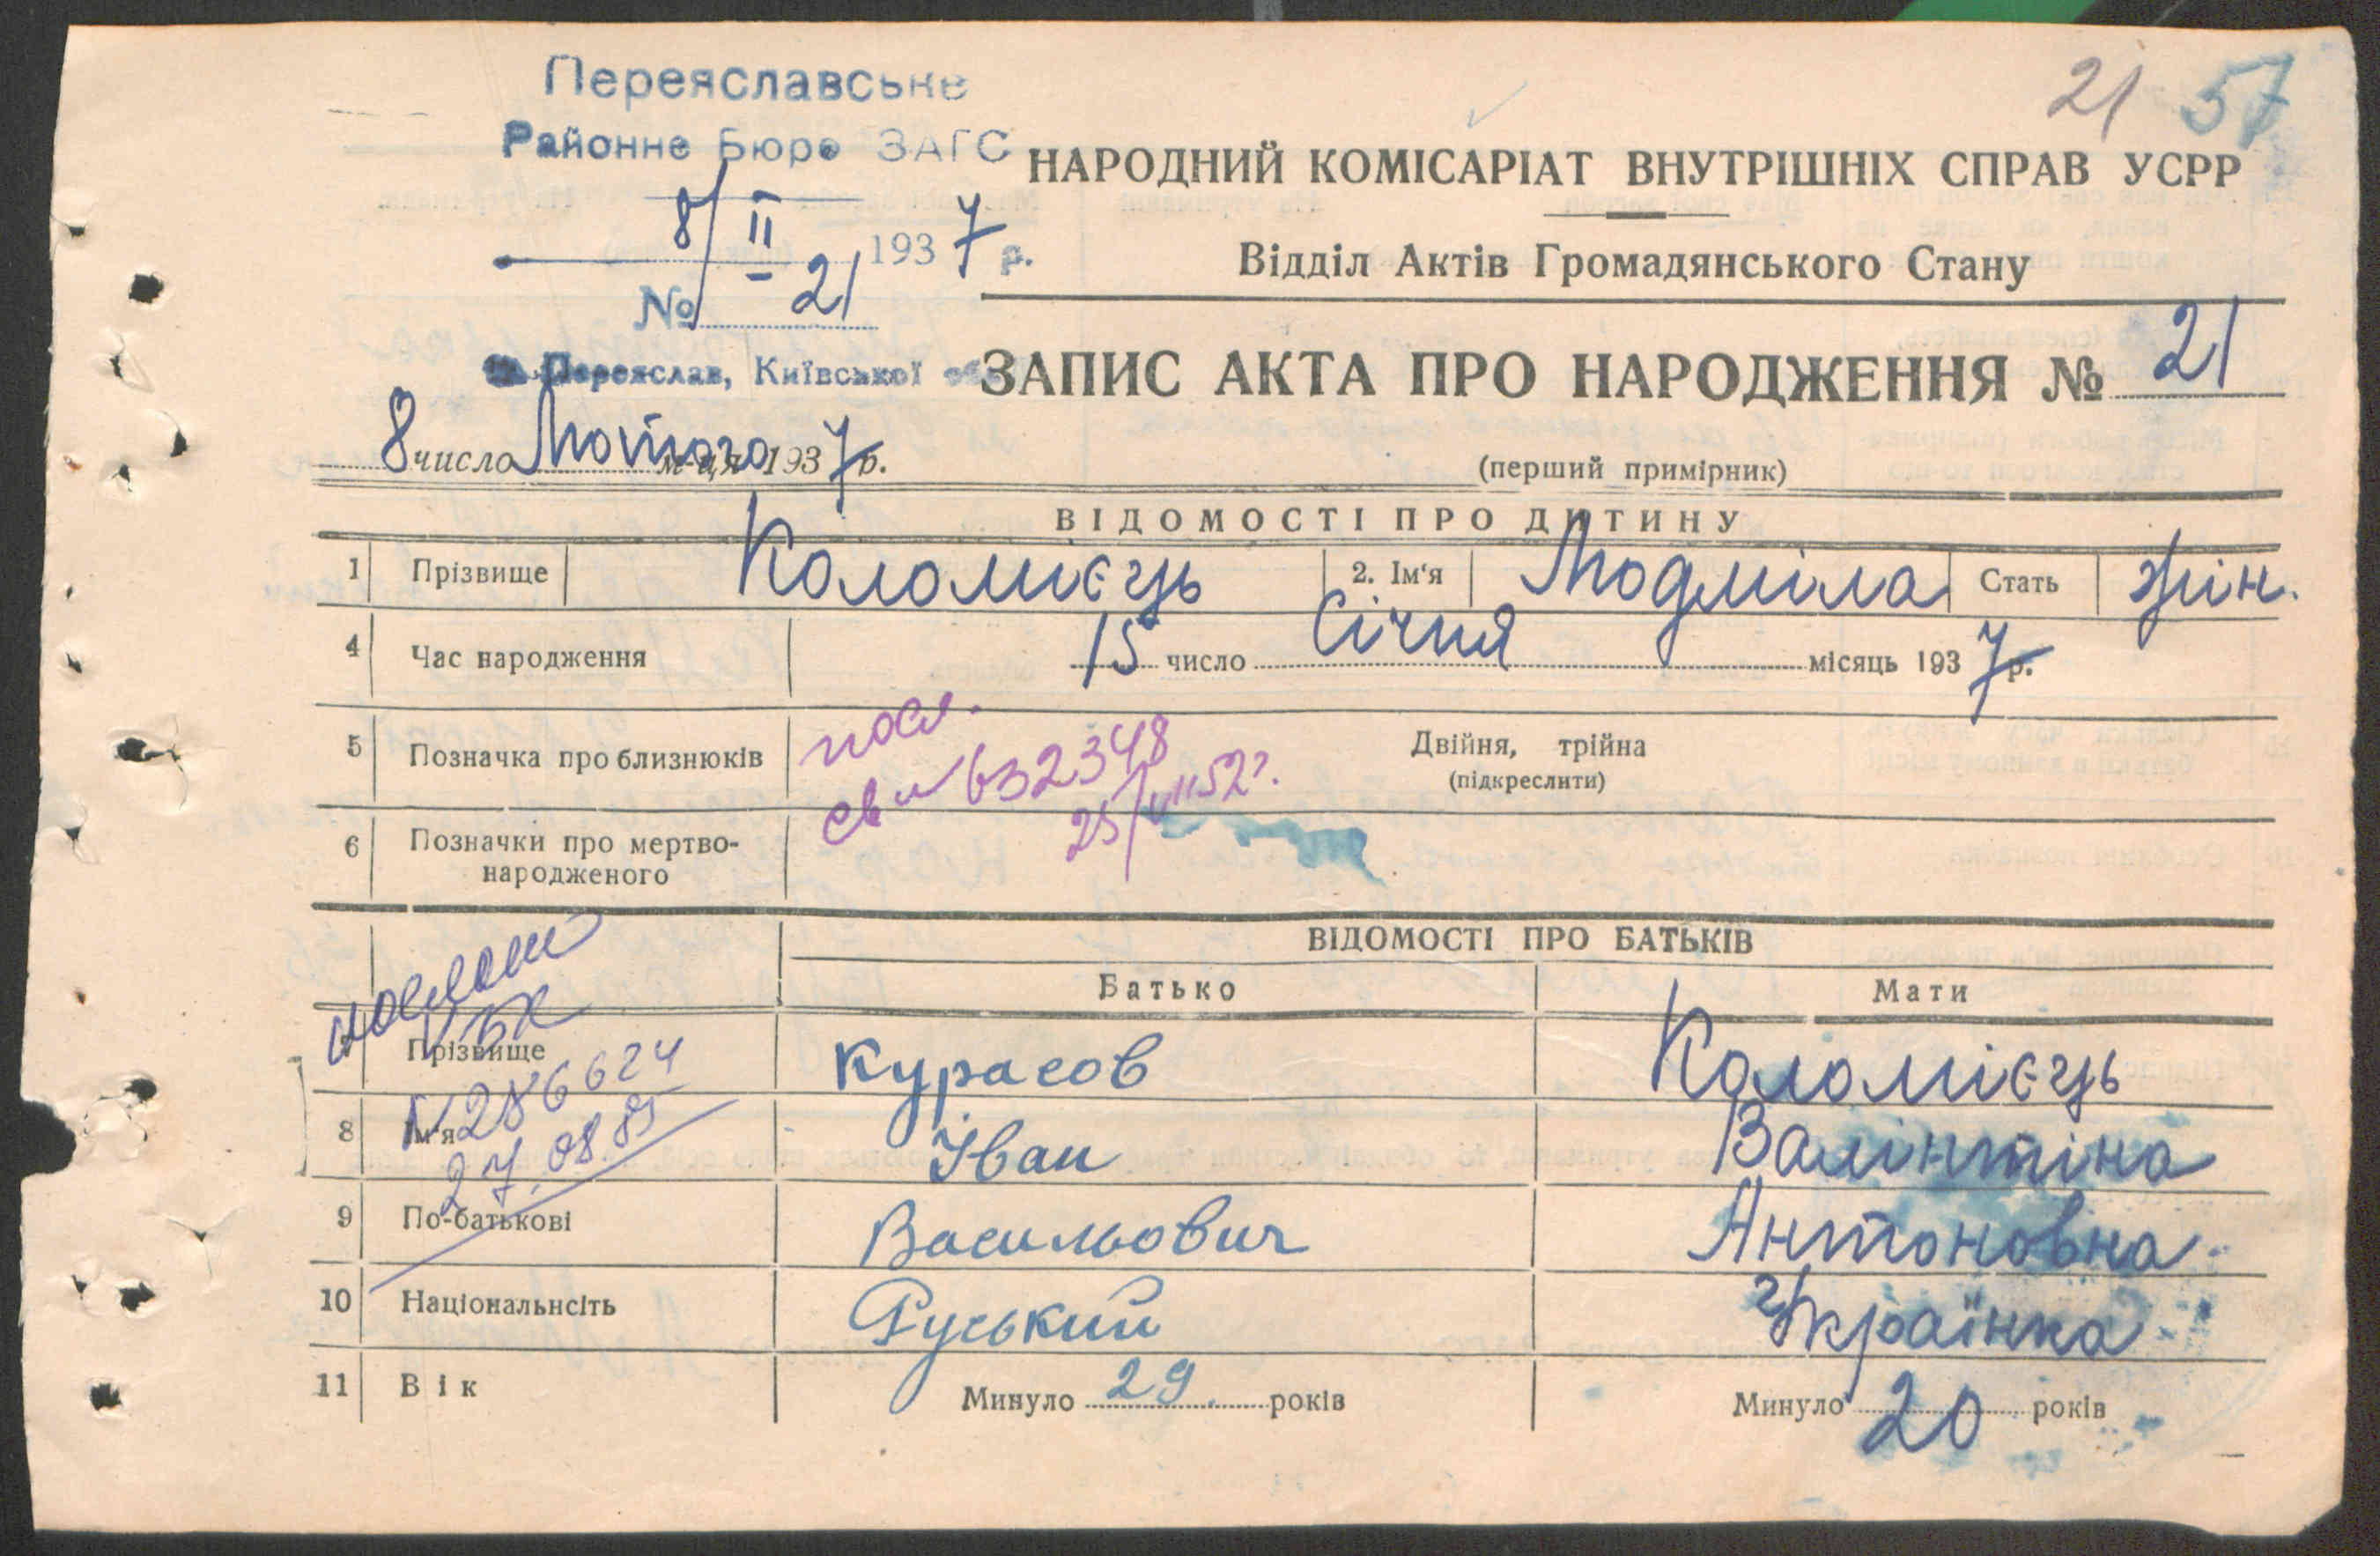 21 57
Переяславське
Районне Бюро ЗАГС
8/II 1937 р.
№ 21
Переяслав, Київської
НАРОДНИЙ КОМІСАРІАТ ВНУТРІШНІХ СПРАВ УСРР
Відділ Актів Громадянського Стану
ЗАПИС АКТА ПРО НАРОДЖЕННЯ № 21
8 число Лютого м-ця 1937 р.
(перший примірник)
ВІДОМОСТІ ПРО ДИТИНУ
1 Прізвище Коломієць 2. Ім'я Людміла Стать жін.
4 Час народження 15 число Січня місяць 1937 р.
5 Позначка про близнюків Двійня, трійна
(підкреслити)
посл.
св 632348
25/VII 52 г.
6 Позначки про мертво-
народженого
ВІДОМОСТІ ПРО БАТЬКІВ
Батько Мати
Прізвище Курасов Коломієць
8 Ім'я Іван Валінтіна
9 По-батькові Васильович Антоновна
10 Національнсіть Руський Українка
11 Вік Минуло 29 років Минуло 20 років
V-БК
№ 286624
27.08.85